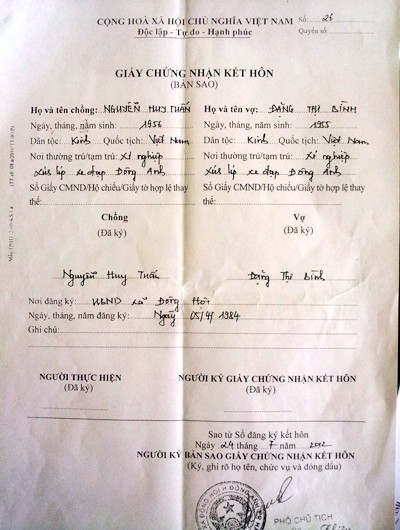 CỘNG HOÀ XÃ HỘI CHỦ NGHĨA VIỆT NAM
Độc lập - Tự do - Hạnh phúc
Số: 26
Quyển số:
GIẤY CHỨNG NHẬN KẾT HÔN
(BẢN SAO)
Họ và tên chồng: NGUYỄN HUY TUẤN Họ và tên vợ: ĐẶNG THỊ BÌNH
Ngày, tháng, năm sinh: 1956 Ngày, tháng, năm sinh: 1955
Dân tộc: Kinh Quốc tịch: Việt Nam Dân tộc: Kinh Quốc tịch: Việt Nam
Nơi thường trú/tạm trú: Xí nghiệp Nơi thường trú/tạm trú: Xí nghiệp
líp xe đạp Đông Anh líp xe đạp Đông Anh
Số Giấy CMND/Hộ chiếu/Giấy tờ hợp lệ thay thế: Số Giấy CMND/Hộ chiếu/Giấy tờ hợp lệ thay thế:
Chồng Vợ
(Đã ký) (Đã ký)
Nguyễn Huy Tuấn Đặng Thị Bình
Nơi đăng ký: UBND xã Đông Hội
Ngày, tháng, năm đăng ký: Ngày 05/4/1984
Ghi chú:
NGƯỜI THỰC HIỆN NGƯỜI KÝ GIẤY CHỨNG NHẬN KẾT HÔN
(Đã ký) (Đã ký)
Sao từ Sổ đăng ký kết hôn
Ngày 24 tháng 7 năm 2012
NGƯỜI KÝ BẢN SAO GIẤY CHỨNG NHẬN KẾT HÔN
(Ký, ghi rõ họ tên, chức vụ và đóng dấu)
PHÓ CHỦ TỊCH